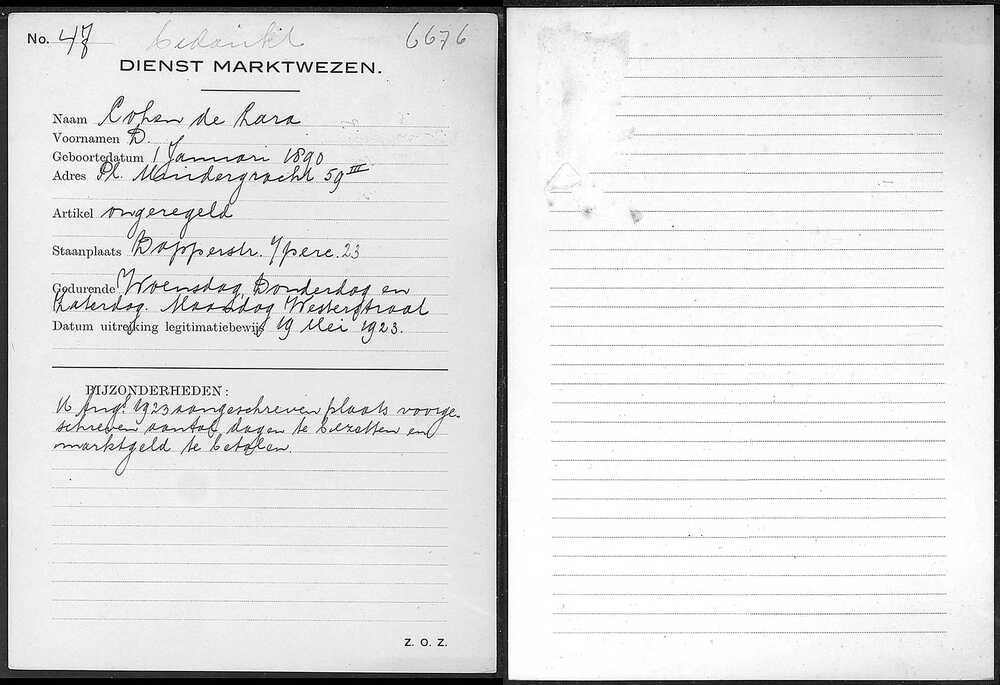 No. 47 Bedankt 6676
DIENST MARKTWEZEN.
Naam Cohen de Lara
Voornamen D.
Geboortedatum 1 Januari 1890
Adres Pl. Muidergracht 59 III
Artikel ongeregeld
Staanplaats Dapperstr. Yperc. 23
Gedurende Woensdag, Donderdag en
Zaterdag. Maandag Westerstraat
Datum uitreiking legitimatiebewijs 19 Mei 1923.
BIJZONDERHEDEN:
16 Aug. 1923 aangeschreven plaats voorge-
schreven aantal dagen te bezetten en
marktgeld te betalen.
Z. O. Z.